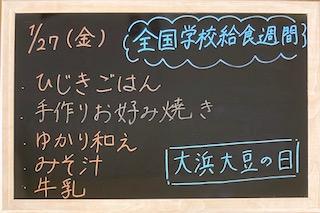 1/27(金)
全国学校給食週間
・ひじきごはん
・手作りお好み焼き
・ゆかり和え
・みそ汁
・牛乳
大浜大豆の日